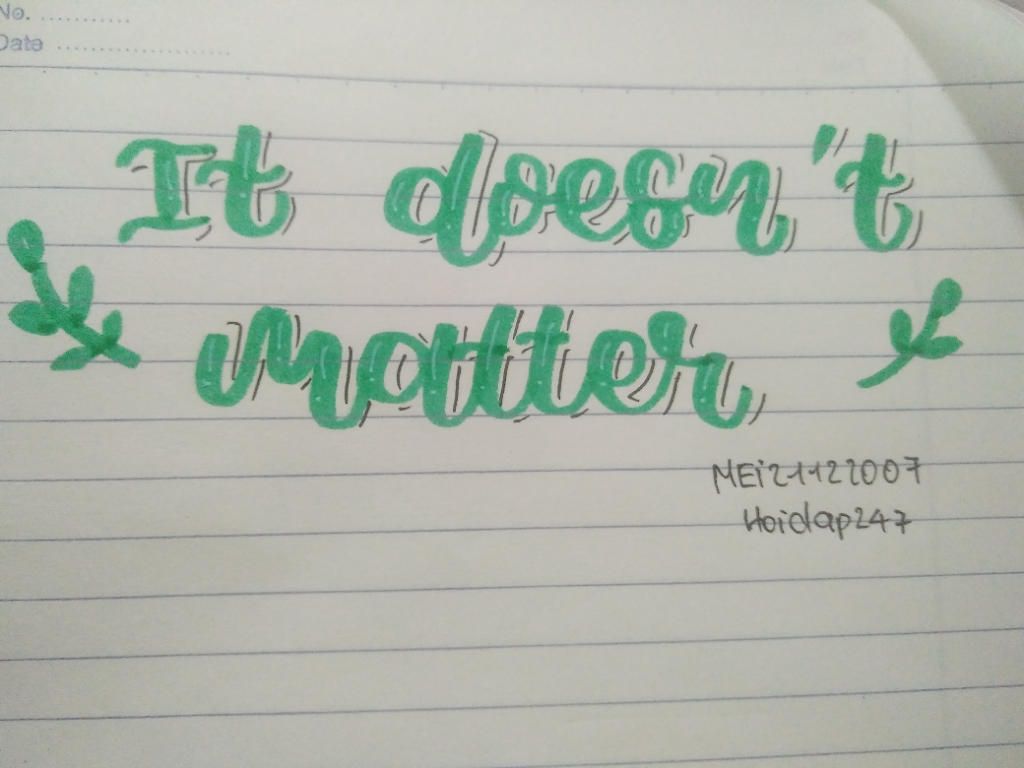 No. ...........
Date .....................
It doesn't
matter
MEi21122007
Hoidap247